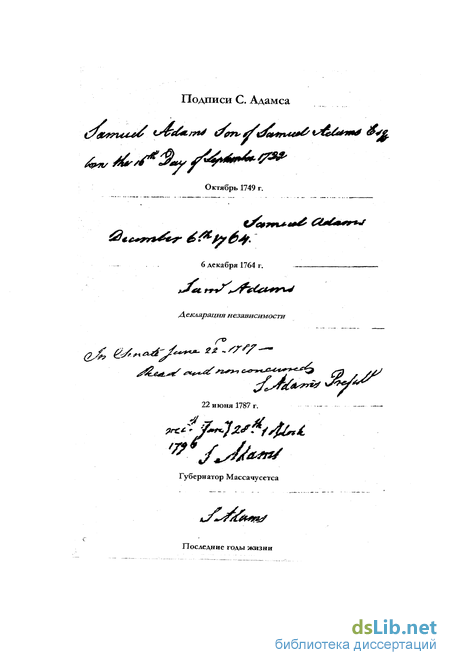 Подписи С. Адамса
Samuel Adams Son of Samuel Adams Esq
born the 16th Day of September 1722
Октябрь 1749 г.
Samuel Adams
December 6th. 1764.
6 декабря 1764 г.
Saml Adams
Декларация независимости
In Senate June 22d. 1787—
Read and nonconcurred
S Adams Presidt
22 июня 1787 г.
recd Jany 28th 1 Clock
1796
S Adams
Губернатор Массачусетса
S Adams
Последние годы жизни
dsLib.net
библиотека диссертаций